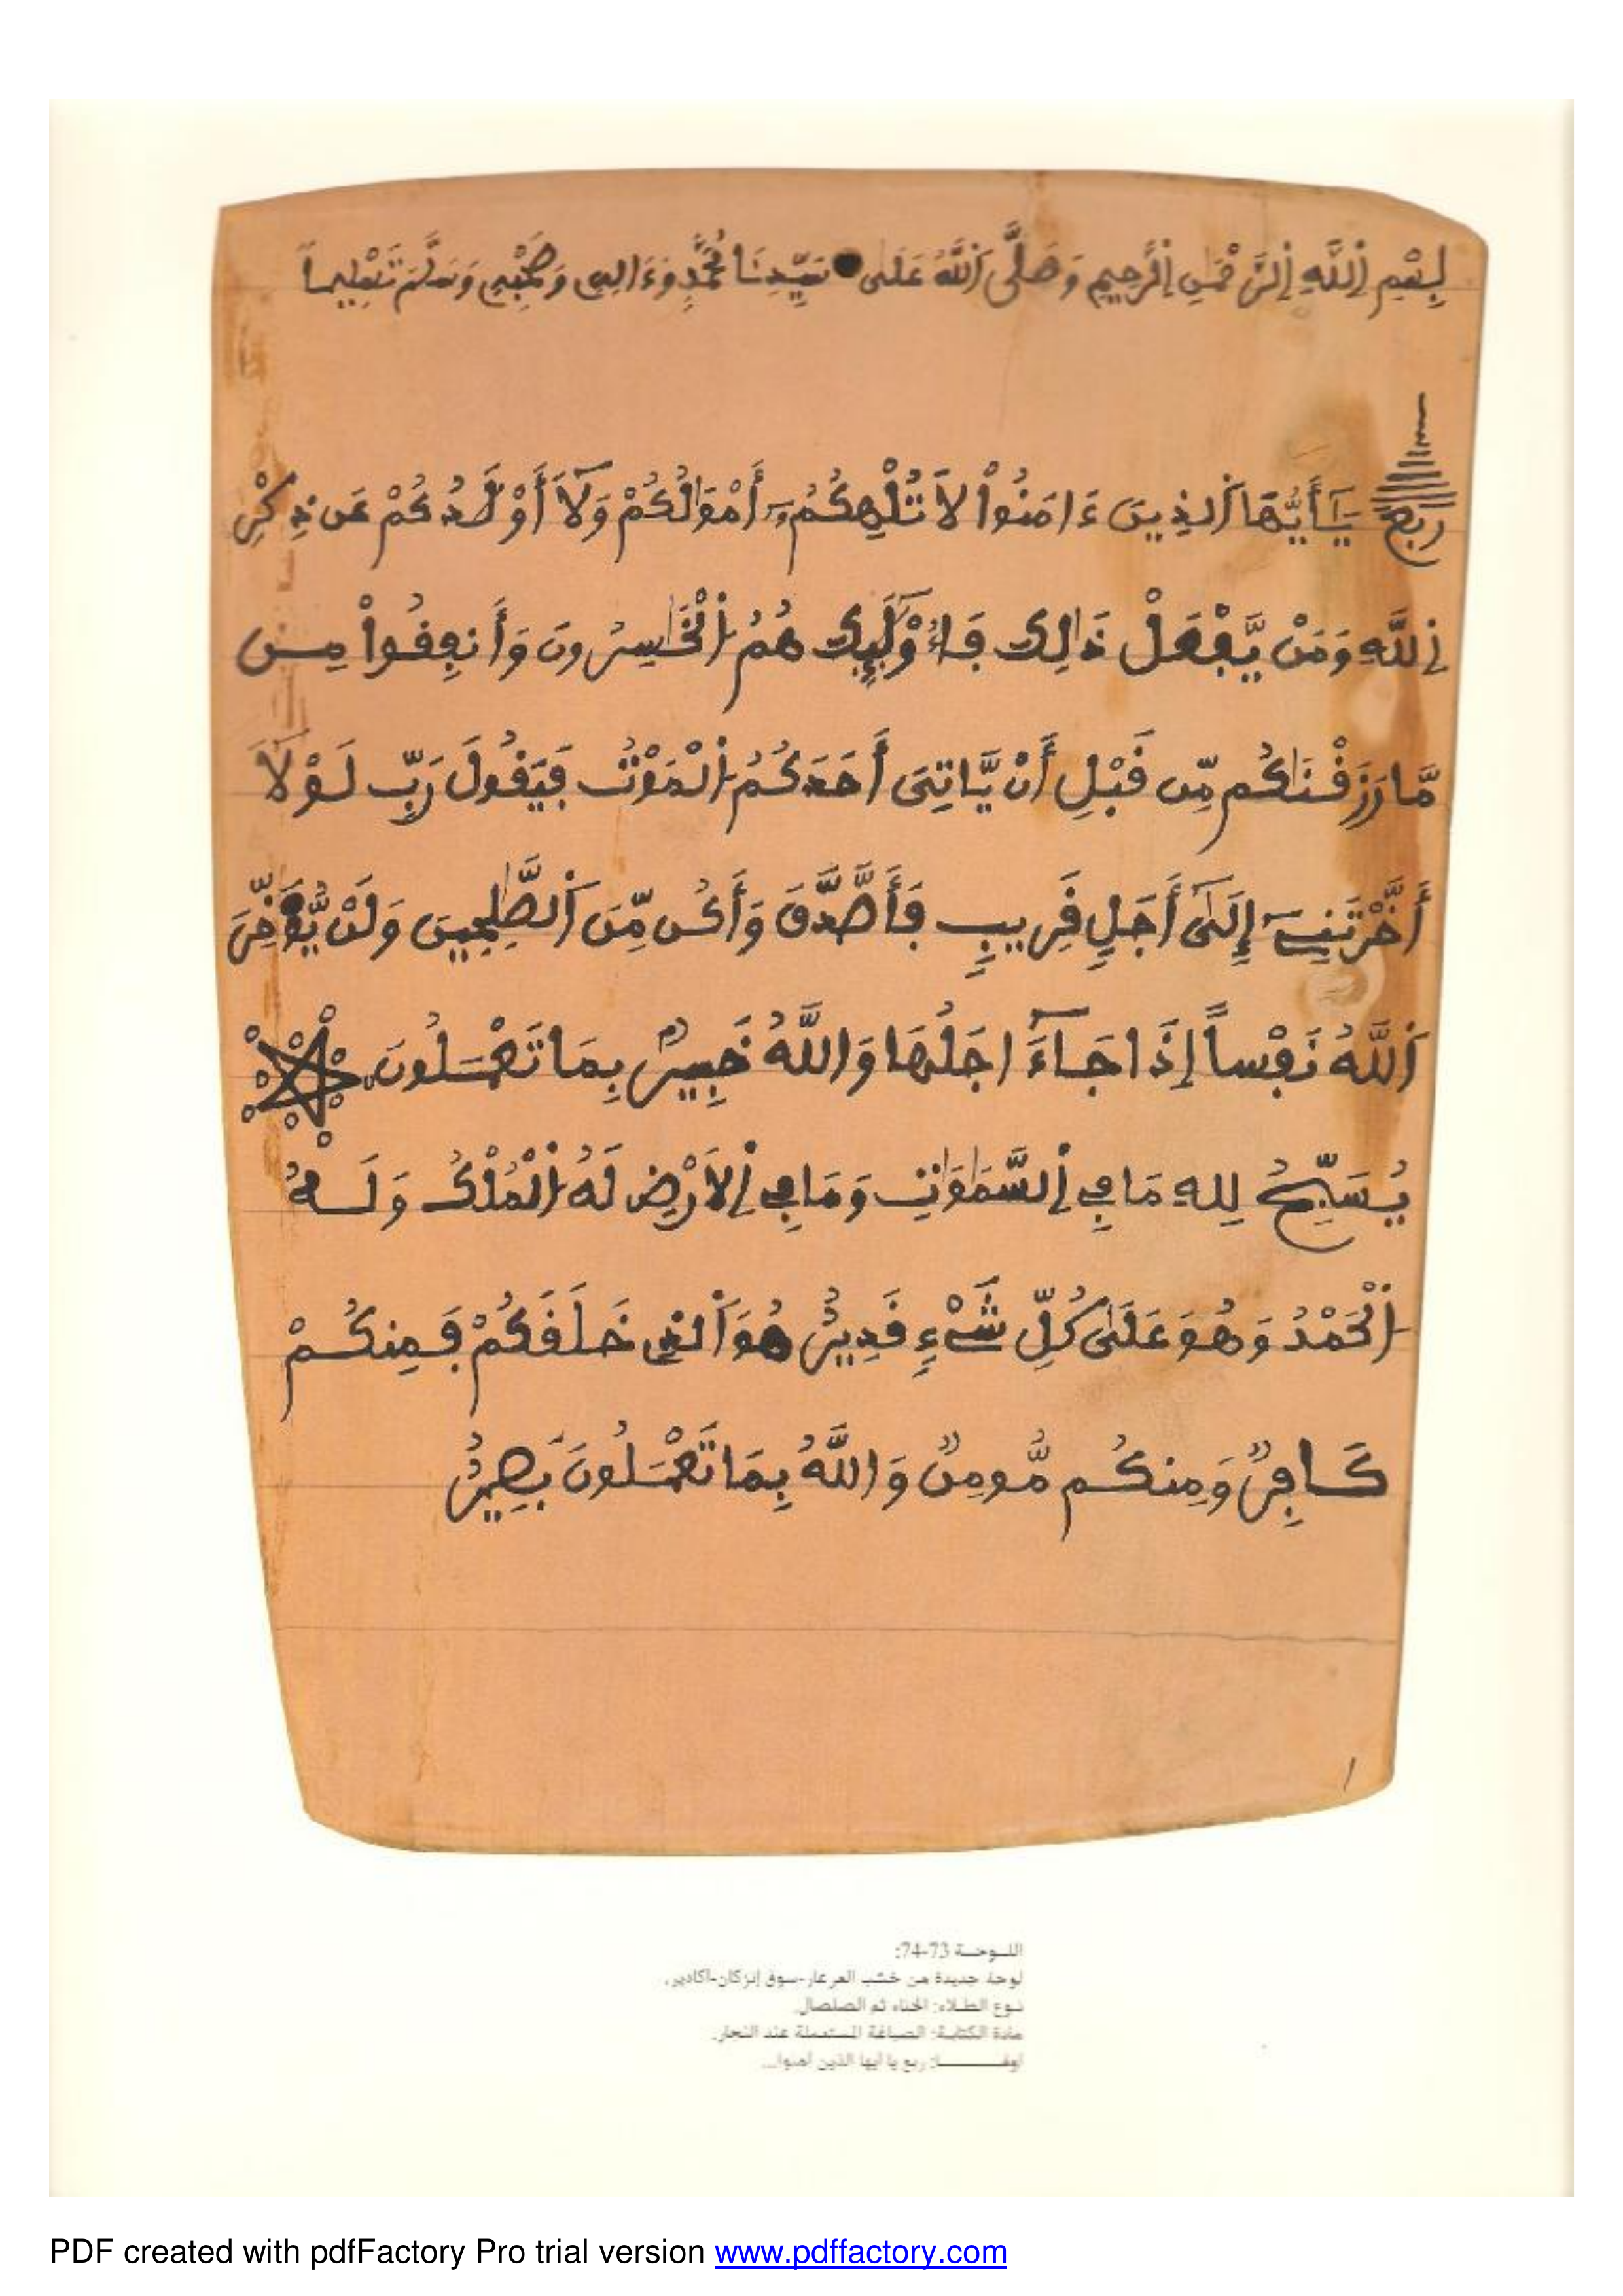 بِسْمِ اِللَّهِ اِلرَّحْمَٰنِ اِلرَّحِيمِ وَصَلَّى اَللَّهُ عَلَى سَيِّدِنَا مُحَمَّدٍ وَءَالِهِ وَصَحْبِهِ وَسَلَّمَ تَسْلِيماً
ربع يَٰٓأَيُّهَا اَلذِينَ ءَامَنُواْ لَا تُلْهِكُمُۥٓ أَمْوَٰلُكُمْ وَلَآ أَوْلَٰدُكُمْ عَن ذِكْرِ
اِللَّهِ وَمَنْ يَّفْعَلْ ذَٰلِكَ فَأُوْلَٰٓئِكَ هُمُ اُلْخَٰسِرُونَ وَأَنفِقُواْ مِن
مَّا رَزَقْنَٰكُم مِّن قَبْلِ أَنْ يَّاتِيَ أَحَدَكُمُ اُلْمَوْتُ فَيَقُولَ رَبِّ لَوْلَآ
أَخَّرْتَنِےٓ إِلَىٰٓ أَجَلٍ قَرِيبٍ فَأَصَّدَّقَ وَأَكُن مِّنَ اَلصَّٰلِحِينَ وَلَنْ يُّؤَخِّرَ
اَللَّهُ نَفْساً إِذَا جَآءَ اجَلُهَا وَاللَّهُ خَبِيرٌ بِمَا تَعْمَلُونَ
يُسَبِّحُ لِلهِ مَا فِي اِلسَّمَٰوَٰتِ وَمَا فِي اِلَارْضِ لَهُ اُلْمُلْكُ وَلَهُ
اُلْحَمْدُ وَهُوَ عَلَىٰ كُلِّ شَےْءٍ قَدِيرٌ هُوَ اَلذِي خَلَقَكُمْ فَمِنكُمْ
كَافِرٌ وَمِنكُم مُّومِنٌ وَاللَّهُ بِمَا تَعْمَلُونَ بَصِيرٌ
١
اللـوحـة 73-74:
لوحة جديدة من خشب العرعار-سوق إنزكان-أكادير.
نـوع الطـلاء: الحناء ثم الصلصال.
مادة الكتابة: الصباغة المستعملة عند النجار.
أوفـــــــا: ربع يا أيها الذين آمنوا...
PDF created with pdfFactory Pro trial version www.pdffactory.com